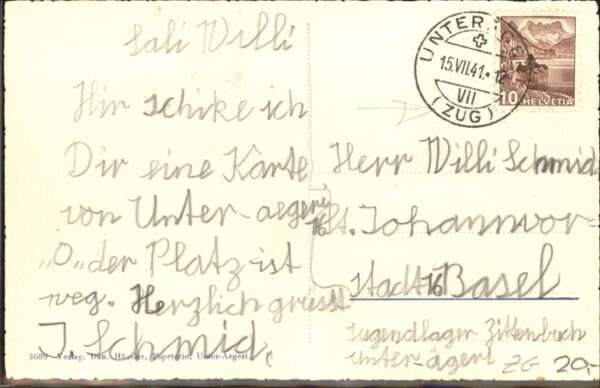 Sali Willi
Hir schike ich
Dir eine Karte
von Unter-aegeri
"O" der Platz ist
weg. Herzlich grüsst
J. Schmid.
UNTER
15.VII.41.
VII
(ZUG)
10 HELVETIA
Herr Willi Schmid
St. Johannvor-
stadt 16 Basel
Jugendlager Zittenbuch
unter-ägeri
ZG 20,-
3609 Verlag: Papeterie, Unter-Aegeri